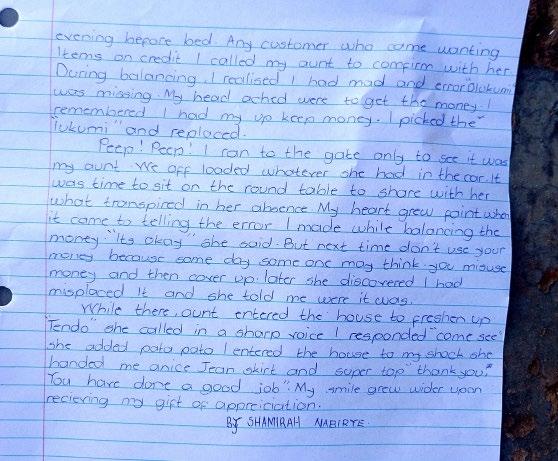 evening before bed. Any customer who came wanting
Items on credit I called my aunt to comfirm with her
During balancing I realised I had mad and error "Olukumi"
was missing. My head ached were to get the money. I
remembered I had my up keep money. I picked the
"lukumi" and replaced.
Peep! Peep! I ran to the gate only to see it was
my aunt. We off loaded whatever she had in the car. It
was time to sit on the round table to share with her
what transpired in her absence My heart grew faint when
it came to telling the error I made while balancing the
money. "Its okay" she said. But next time don't use your
money because some day some one may think you misuse
money and then cover up. later she discovered I had
misplaced it and she told me were it was.
While there, aunt entered the house to freshen up
"Tendo" she called in a sharp voice I responded "come see"
she added pata pata I entered the house to my shock she
handed me anice Jean skirt and super top "thank you"
You have done a good job". My smile grew wider upon
recieving my gift of appreiciation.
By SHAMIRAH NABIRYE